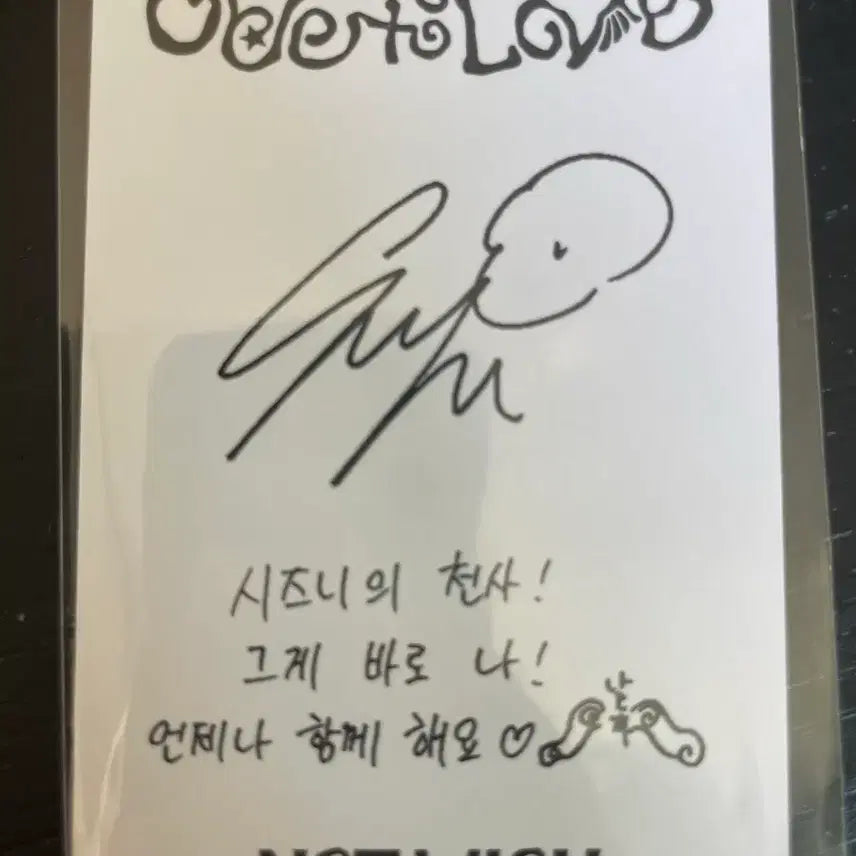 Ode to Love
시즈니의 천사!
그게 바로 나!
언제나 함께 해요♡
NCT WISH